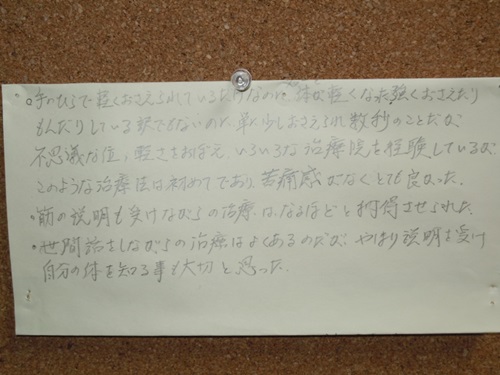 ○手のひらで軽くおさえられているだけなのに、体が軽くなった。強くおさえたり
もんだりしている訳でもないのに、単に少しおさえられ数秒のことだが
不思議な位、軽さをおぼえ、いろいろな治療院も経験しているが
このような治療法は初めてであり、苦痛感がなくとても良かった。
・筋の説明も受けながらの治療は、なるほどと納得させられた。
・世間話をしながらの治療はよくあるのだが、やはり説明を受け
自分の体を知る事も大切と思った。